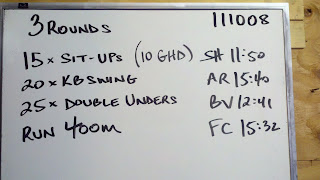 3 ROUNDS 111008
15 x SIT-UPS (10 GHD) SH 11:50
20 x KB SWING AR 15:40
25 x DOUBLE UNDERS BV 12:41
RUN 400m FC 15:32